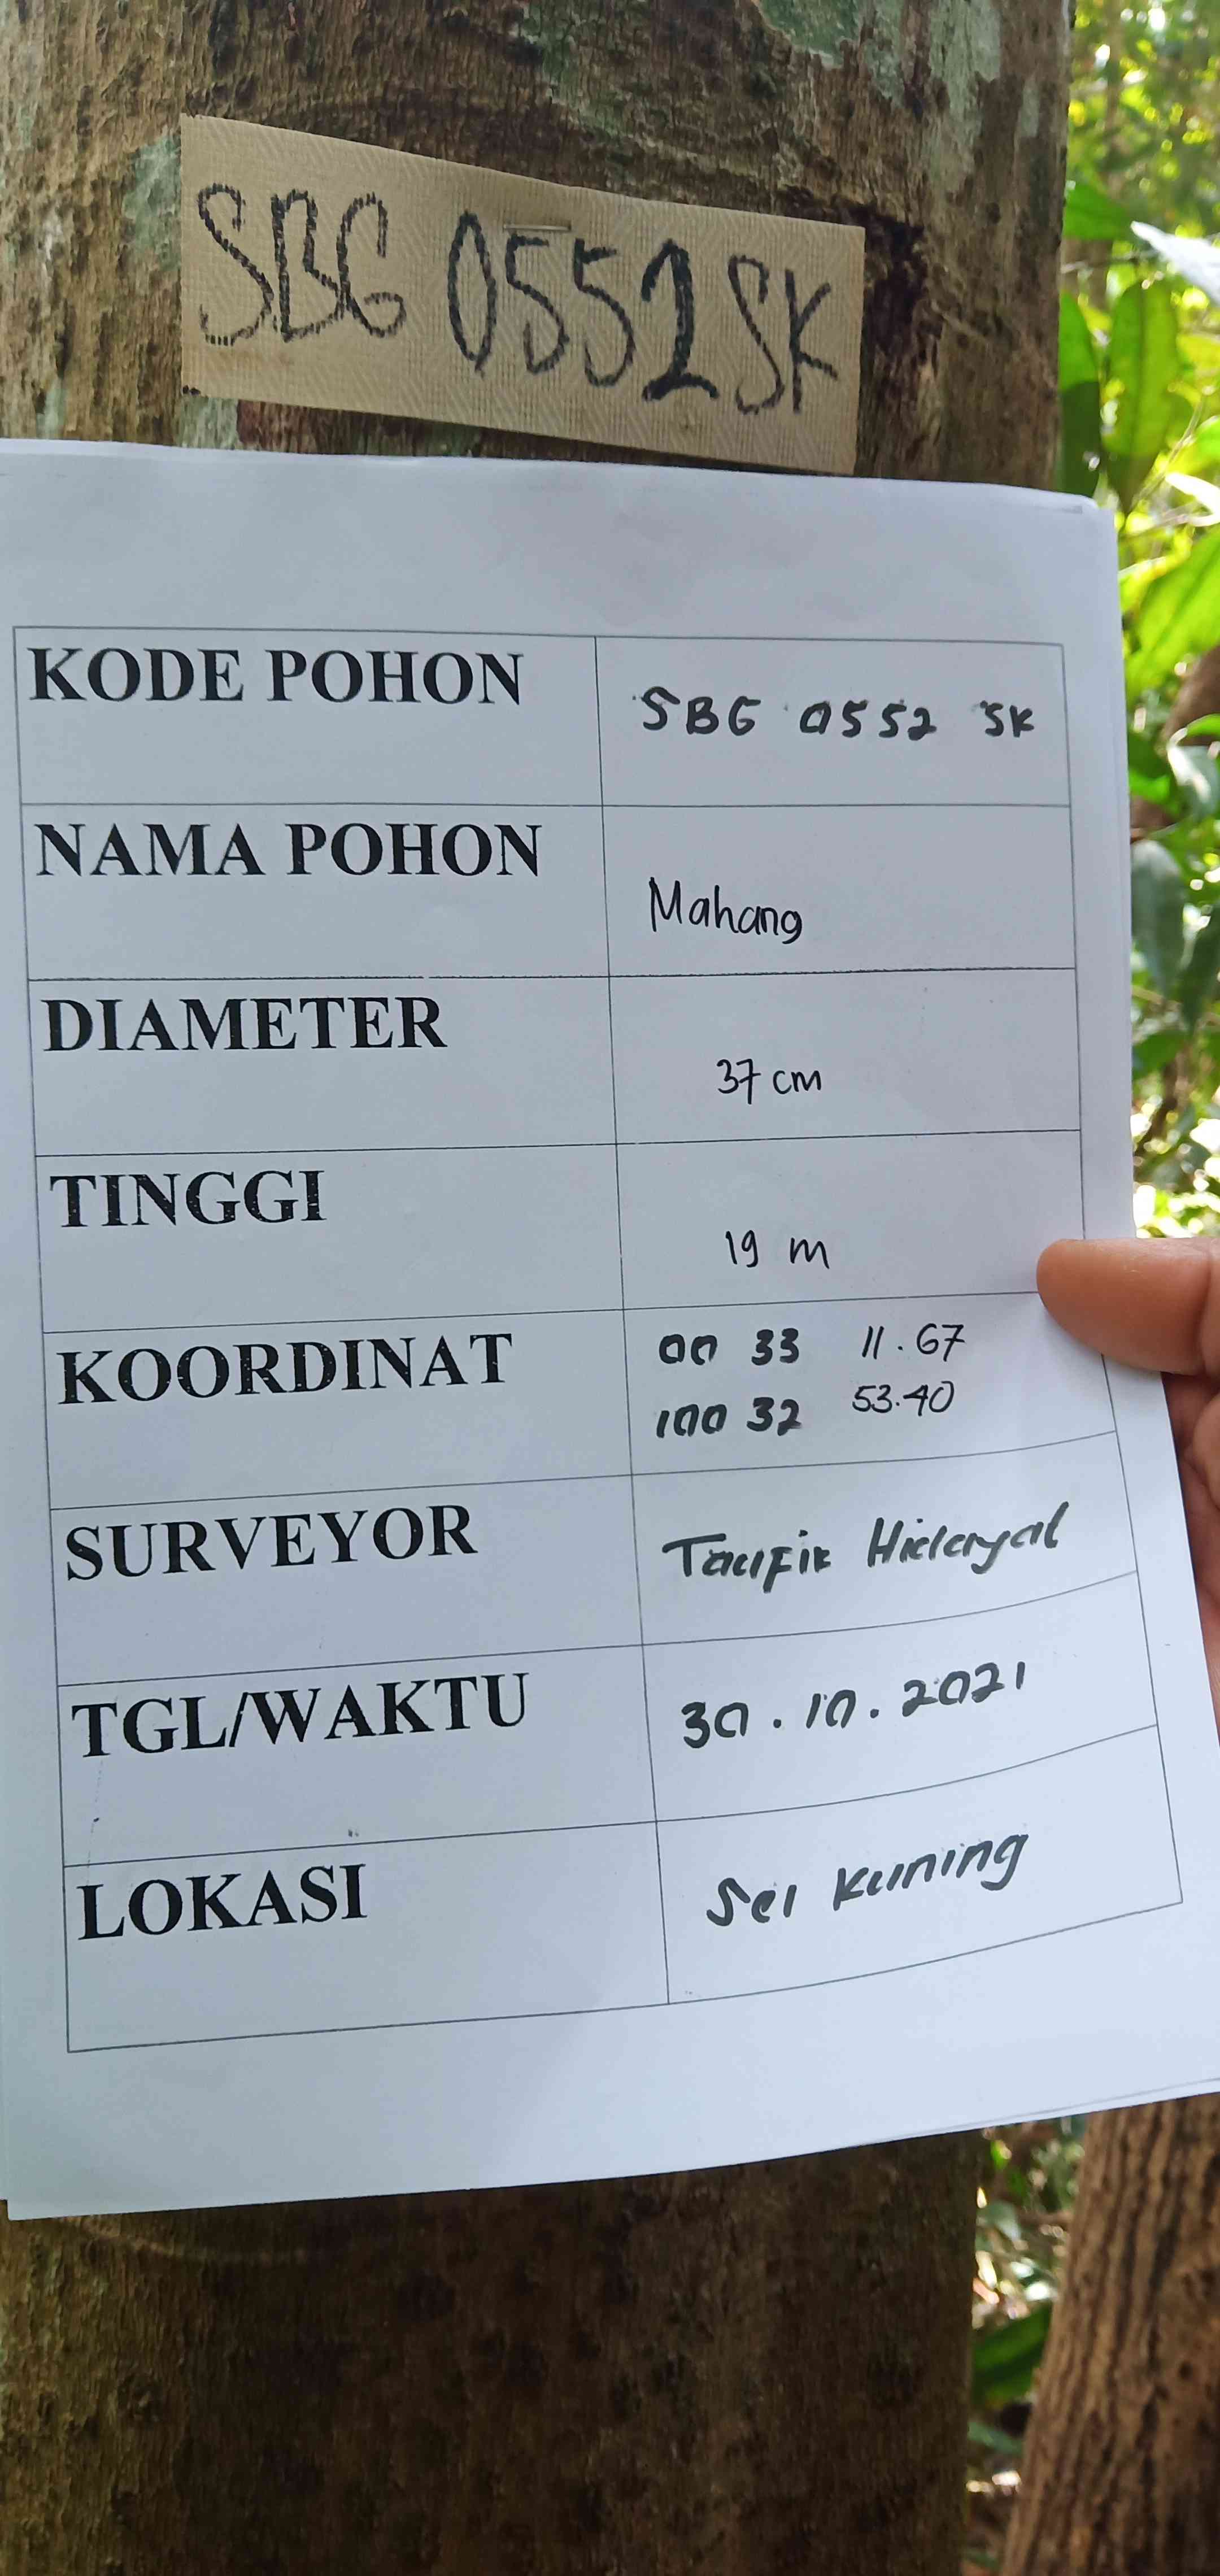 SBG 0552 SK
KODE POHON
SBG 0552 SK
NAMA POHON
Mahang
DIAMETER
37 cm
TINGGI
19 m
KOORDINAT
00 33 11.67
100 32 53.40
SURVEYOR
Taufik Hidayat
TGL/WAKTU
30.10.2021
LOKASI
Sei Kuning